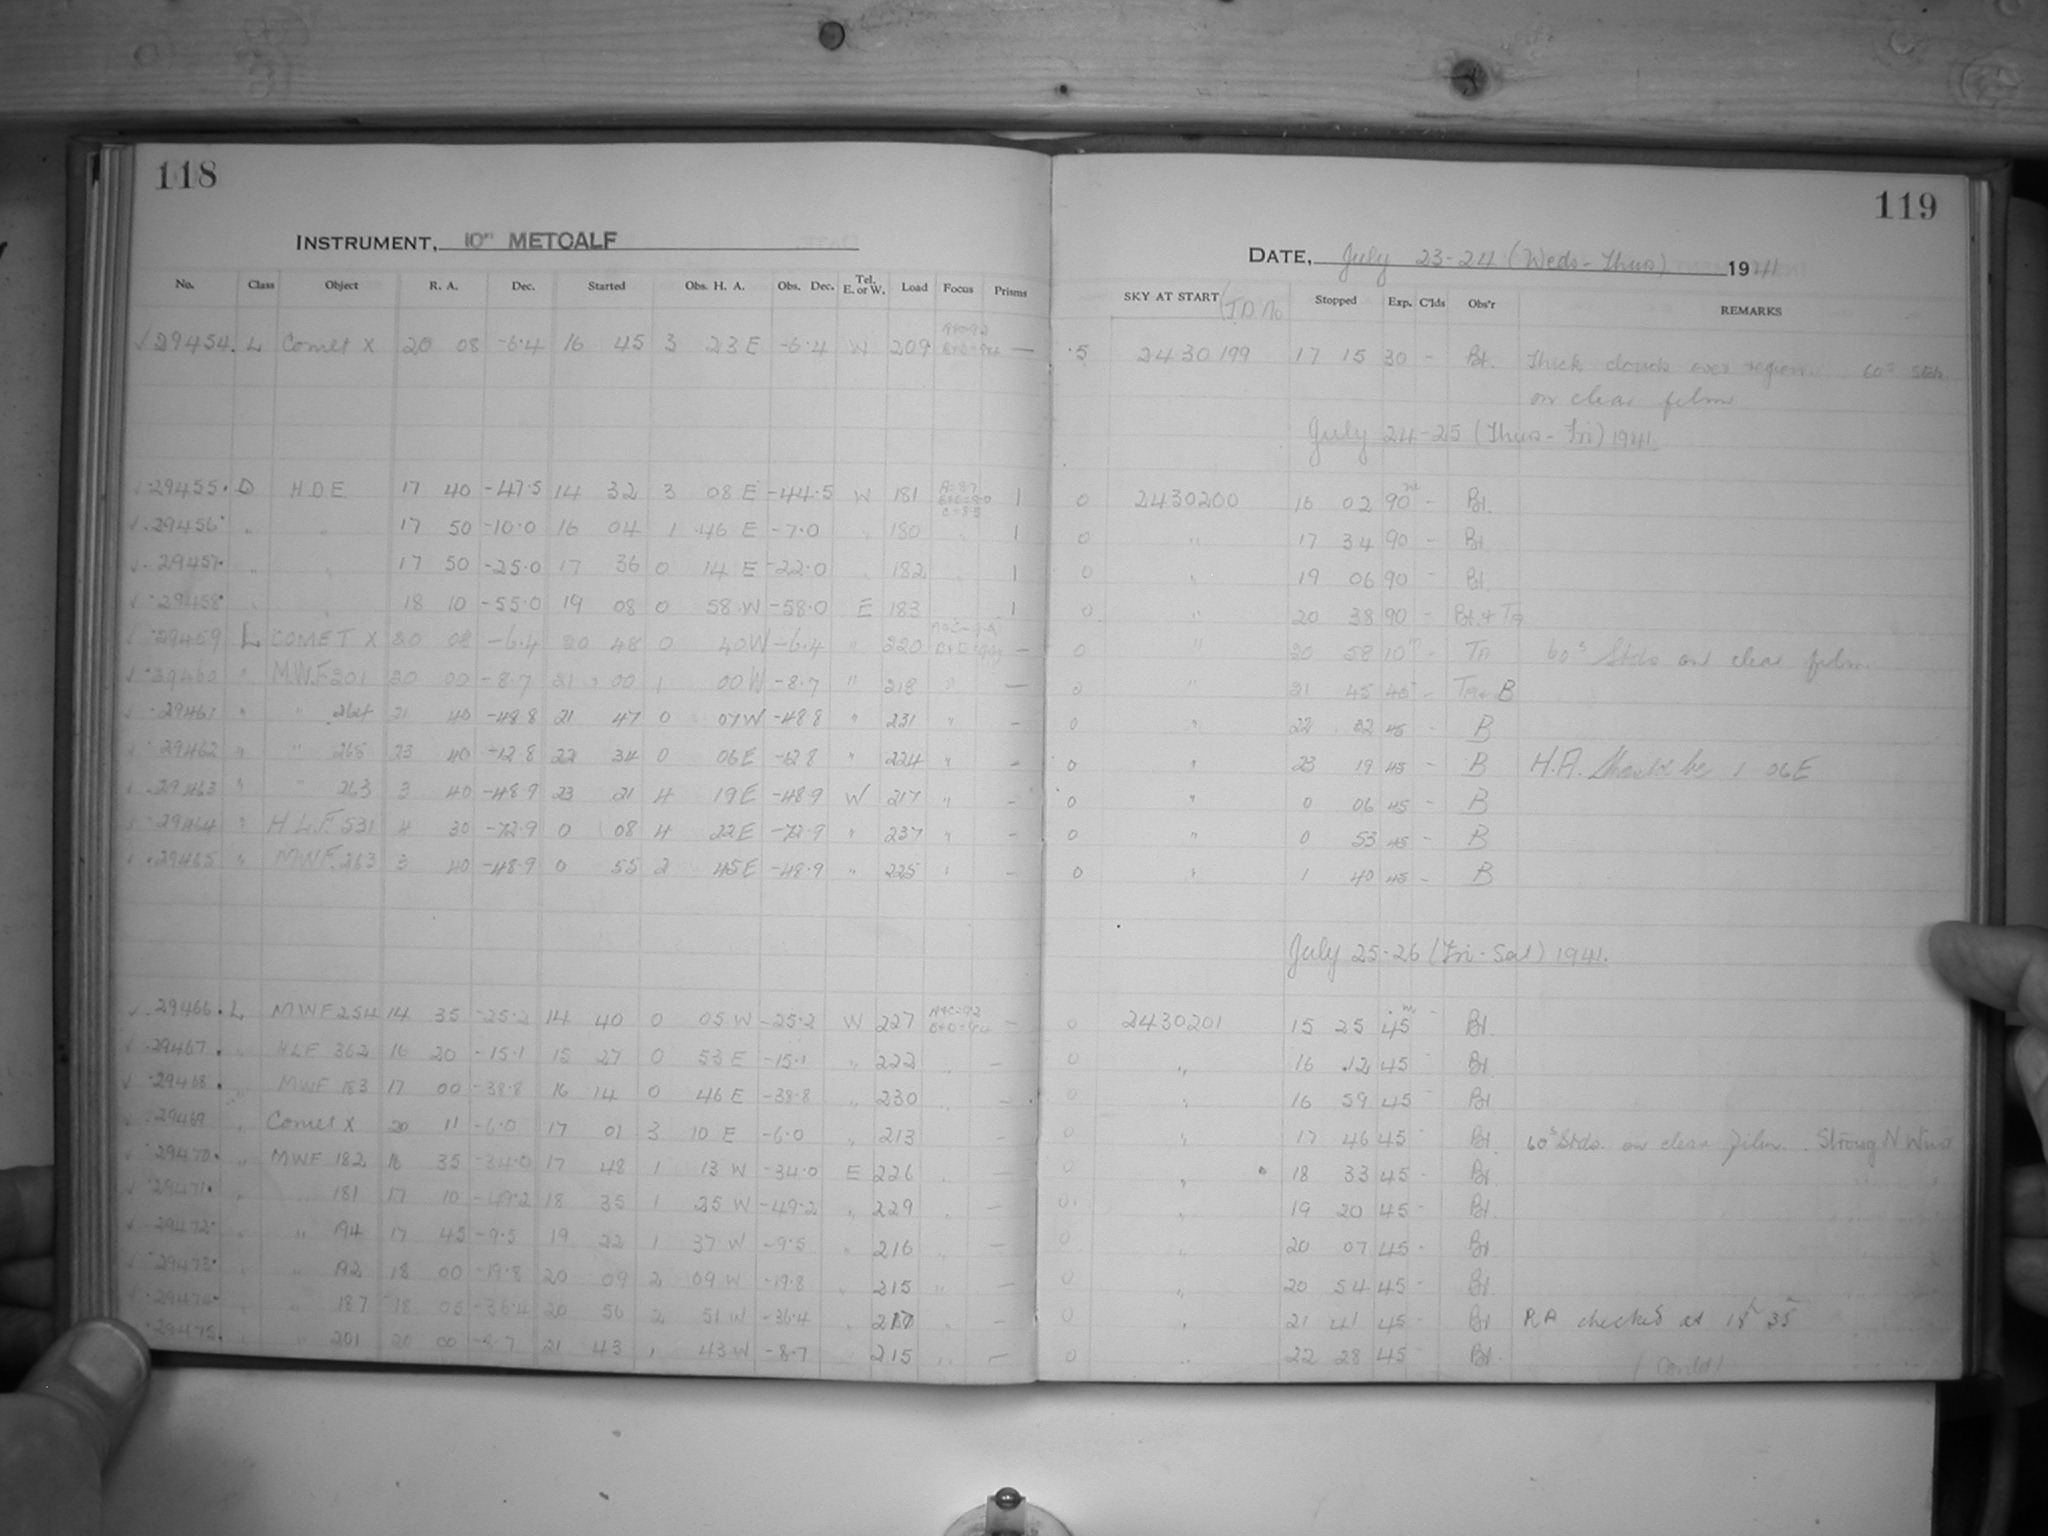 118
INSTRUMENT, 10" METCALF
No. Class Object R. A. Dec. Started Obs. H. A. Obs. Dec. Tel. E. or W. Load Focus Prisms
29454. L Comet X 20 08 -6.4 16 45 3 23 E -6.4 W 209 —
29455. D H.D.E. 17 40 -47.5 14 32 3 08 E -44.5 W 181 1
29456 " " 17 50 -10.0 16 04 1 46 E -7.0 " 180 " 1
29457. " " 17 50 -25.0 17 36 0 14 E -22.0 " 182 " 1
29458 " " 18 10 -55.0 19 08 0 58 W -58.0 E 183 1
29459 L COMET X 20 08 -6.4 20 48 0 40 W -6.4 " 220 —
29460 " M.W.F. 201 20 00 -8.7 21 00 1 00 W -8.7 " 218 " —
29461 " " 264 21 40 -48.8 21 47 0 07 W -48.8 " 231 " -
29462 " " 265 23 40 -12.8 22 34 0 06 E -12.8 " 224 " -
29463 " " 263 3 40 -48.9 23 21 4 19 E -48.9 W 217 " -
29464 " H.L.F. 531 4 30 -72.9 0 08 4 22 E -72.9 " 237 " -
29465 " MWF. 263 3 40 -48.9 0 55 2 45 E -48.9 " 225 " -
29466. L MWF 254 14 35 -25.2 14 40 0 05 W -25.2 W 227 —
29467. " HLF 362 16 20 -15.1 15 27 0 53 E -15.1 " 222 " —
29468. " MWF 183 17 00 -38.8 16 14 0 46 E -38.8 " 230 " -
29469 " Comet X 20 11 -6.0 17 01 3 10 E -6.0 " 213 -
29470. " MWF 182 16 35 -34.0 17 48 1 13 W -34.0 E 226 " —
29471. " 181 17 10 -49.2 18 35 1 25 W -49.2 " 229 " —
29472. " " 194 17 45 -9.5 19 22 1 37 W -9.5 " 216 " —
29473. " " 192 18 00 -19.8 20 09 2 09 W -19.8 " 215 " —
29474. " " 187 18 05 -36.4 20 56 2 51 W -36.4 " " -
29475. " " 201 20 00 -8.7 21 43 1 43 W -8.7 215 " —
119
DATE, July 23-24 (Weds-Thurs) 1941
SKY AT START (J.D. No Stopped Exp. C'lds Obs'r REMARKS
.5 2430199 17 15 30 - Bt. Thick clouds over region. 60s Stds.
on clear film
July 24-25 (Thurs-Fri) 1941.
0 2430200 16 02 90m - Bt.
0 " 17 34 90 - Bt
0 " 19 06 90 - Bt.
0 " 20 38 90 - Bt. + Ta
0 " 20 58 10m - Ta 60s Stds on clear film.
0 " 21 45 45 - Ta + B
0 " 22 32 45 - B
0 " 23 19 45 - B H.A. should be 1 06 E
0 " 0 06 45 - B
0 " 0 53 45 - B
0 " 1 40 45 - B
July 25-26 (Fri-Sat) 1941.
0 2430201 15 25 45m - Bt.
0 " 16 12 45 - Bt
0 " 16 59 45 - Bt
0 " 17 46 45 - Bt. 60s Stds. on clear film. Strong N Wind
0 " 18 33 45 - Bt
0 " 19 20 45 - Bt.
0 " 20 07 45 - Bt
0 " 20 54 45 - Bt.
0 " 21 41 45 - Bt RA checked at 18h 35m
0 " 22 28 45 - Bt. (Contd)